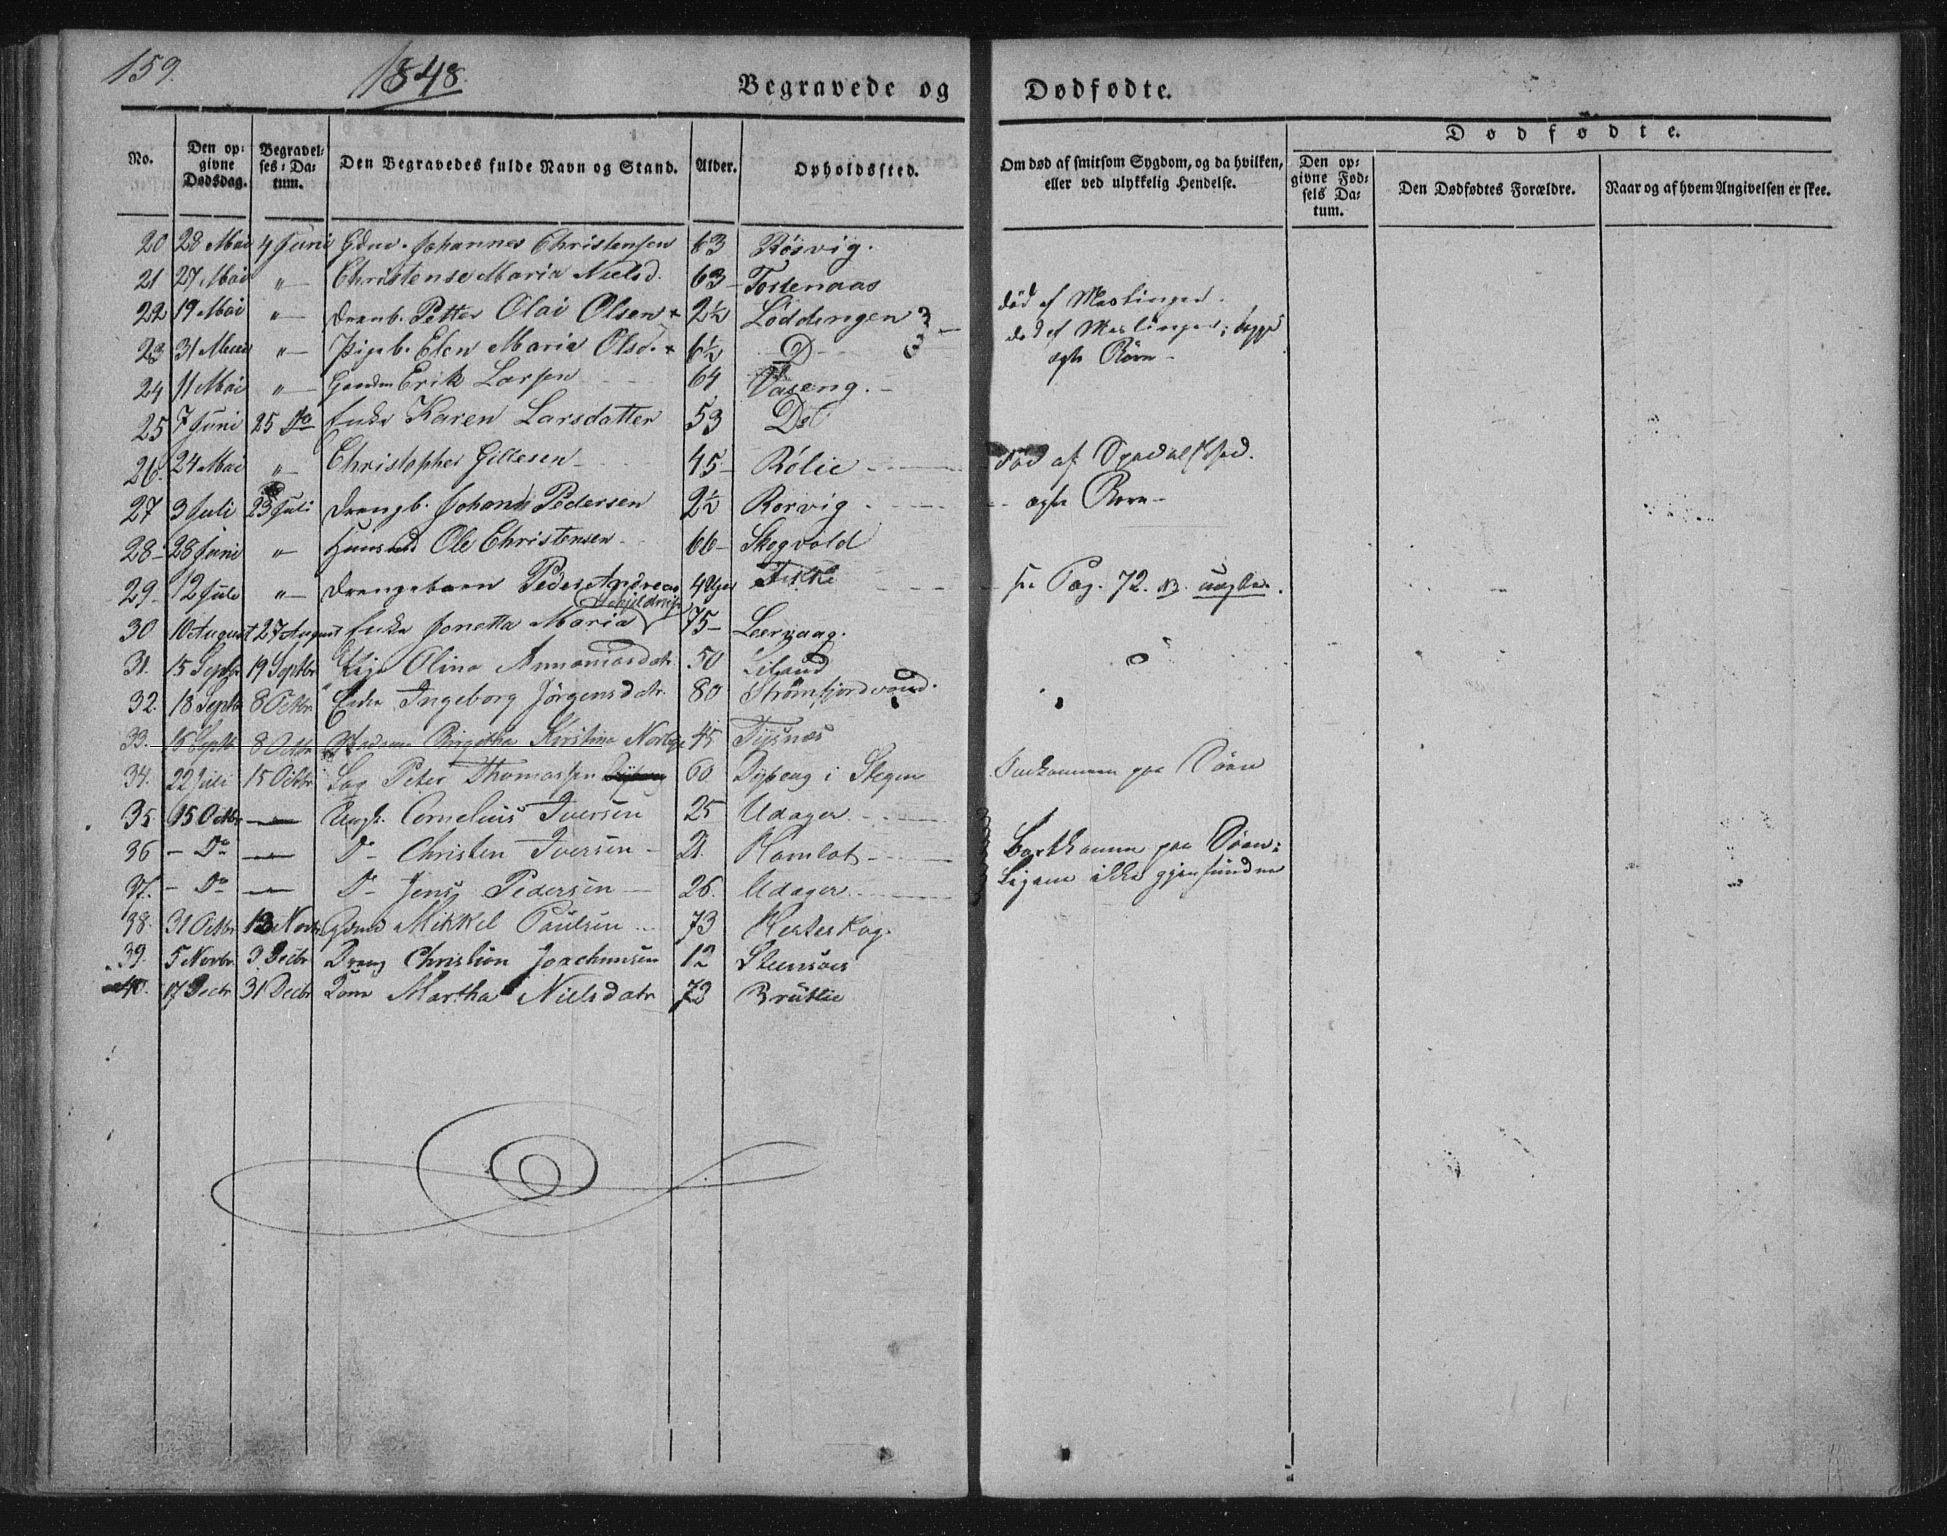 159. 1848. Begravede og Dødfødte.
Dødfødte.
No. Den opgivne Dødsdag. Begravelses-Datum. Den Begravedes fulde Navn og Stand. Alder. Opholdssted. Om død af smitsom Sygdom, og da hvilken, eller ved ulykkelig Hendelse. Den opgivne Fødsels Datum. Den Dødfødtes Forældre. Naar og af hvem Angivelsen er skee.
20 28 Mai 4 Juni Johannes Christensen 63 Rösvig.
21 27 Mai " Christense Maria Nielsd. 63 Tostenaas
22 19 Mai " Drenb. Petter Olai Olsen + 2½ Löddingen død af Meslinger.
23 31 Mai " Pigeb. Elen Maria Olsd. + 6½ D død af Meslinger; begge
ægte Börn
24 11 Mai " Gaardm Erik Larsen 64 Vaseng.
25 7 Juni 25 Do Enke Karen Larsdatter 53 Do
26. 24 Mai " Christopher Gillesen 45 Rölie Död af Spedalskhed.
27 3 Juli 23 Juli Drengb. Johan Pedersen 2½ Rorvig ægte Barn
28 28 Juni " Huusmd Ole Christensen 66 Skogvold
29 12 Juli " Drengebarn Peder Andreas 4 Uger Fiske see Pag. 72. uægte.
30 10 August 27 August Enke Jonetta Maria Schjeldrup 75 Leervaag.
31. 15 Septbr 19 Septbr Pige Olina Annaniasdatr 50 Liland
32. 18 Septbr 8 Octbr Enke Ingeborg Jörgensdatr. 80 Strömfjordvand.
33. 15 Septbr 8 Octbr Madame Birgitha Kirstine 45 Tysnæs
34. 22 Juli 15 Octbr Peter Thomassen 60 i Stegen Omkommen paa Söen
35. 15 Octbr Ungk. Cornelius Iversen 25 Udager
36 Do Do Christen Iversen 21. Hamlot Bortkomne paa Söen;
37. Do Do Jens Pedersen 26. Udager Ligene ikke gjenfundne
38. 31 Octbr 13 Novbr Mikkel Paulsen 73 Hesteskog.
39. 5 Novbr. 3 Decbr Dreng Christian Joachimsen 12 Steensøes
40. 17 Decbr 31 Decbr Kone Martha Nielsdatr 72 Brütlie